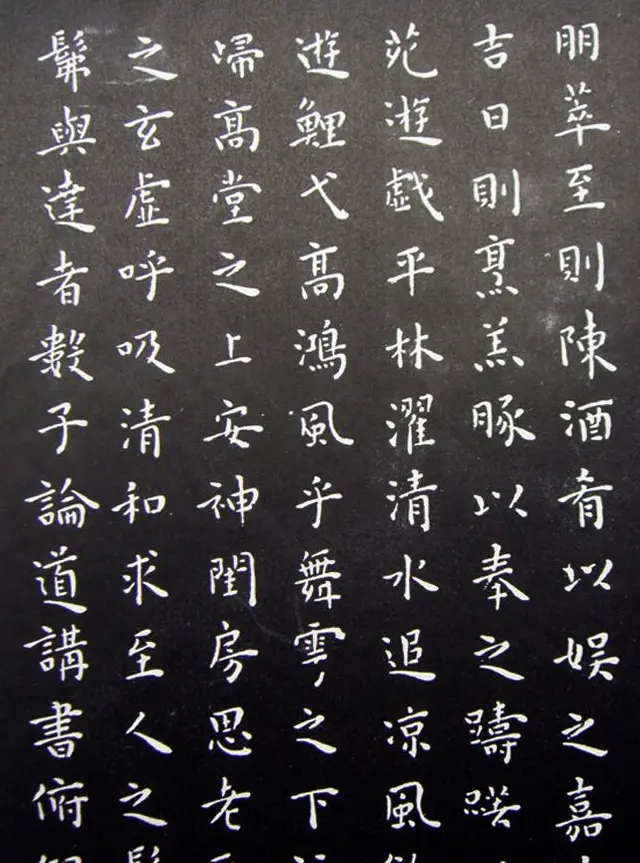 朋萃至則陳酒肴以娯之嘉
吉日則烹羔豚以奉之躊躇
苑遊戯平林濯清水追凉風
遊鯉弋髙鴻風乎舞雩之下
歸髙堂之上安神閨房思老
之玄虚呼吸清和求至人之
髴與達者數子論道講書俯